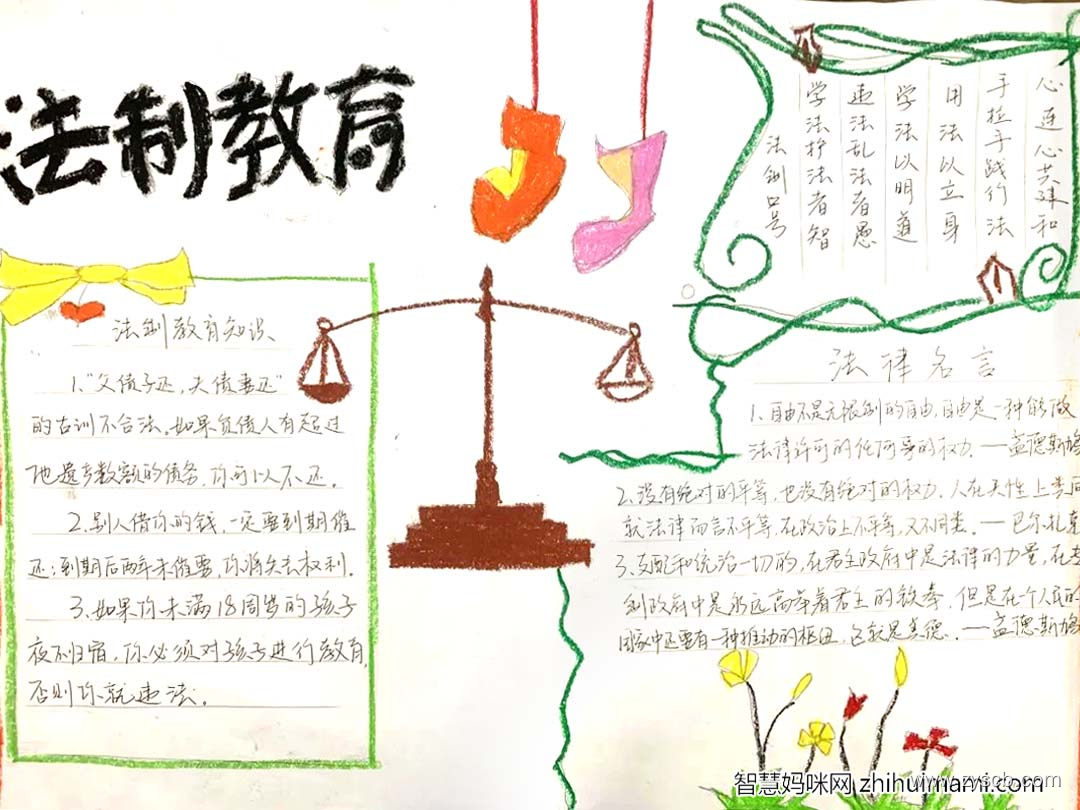 法制教育
心连心共建和
手拉手践行法
用法以立身
学法以明道
违法乱法者愚
学法护法者智
法制口号
法制教育知识
1."父债子还,夫债妻还"
的古训不合法。如果负债人有超过
他遗产数额的债务,你可以不还。
2.别人借你的钱,一定要到期催
还;到期后两年未催要,你将失去权利。
3.如果你未满18周岁的孩子
夜不归宿,你必须对孩子进行教育,
否则你就违法。
法律名言
1.自由不是无限制的自由,自由是一种能做
法律许可的任何事的权力.——孟德斯鸠
2.没有绝对的平等,也没有绝对的权力.人在天性上类同
就法律而言不平等,在政治上不平等,又不同类.——巴尔扎克
3.支配和统治一切的,在君主政府中是法律的力量,在专
制政府中是永远高举着君主的铁拳,但是在个人民的
国家中还要有一种推动的枢纽,它就是美德.——孟德斯鸠
智慧妈咪网 zhihuimami.com